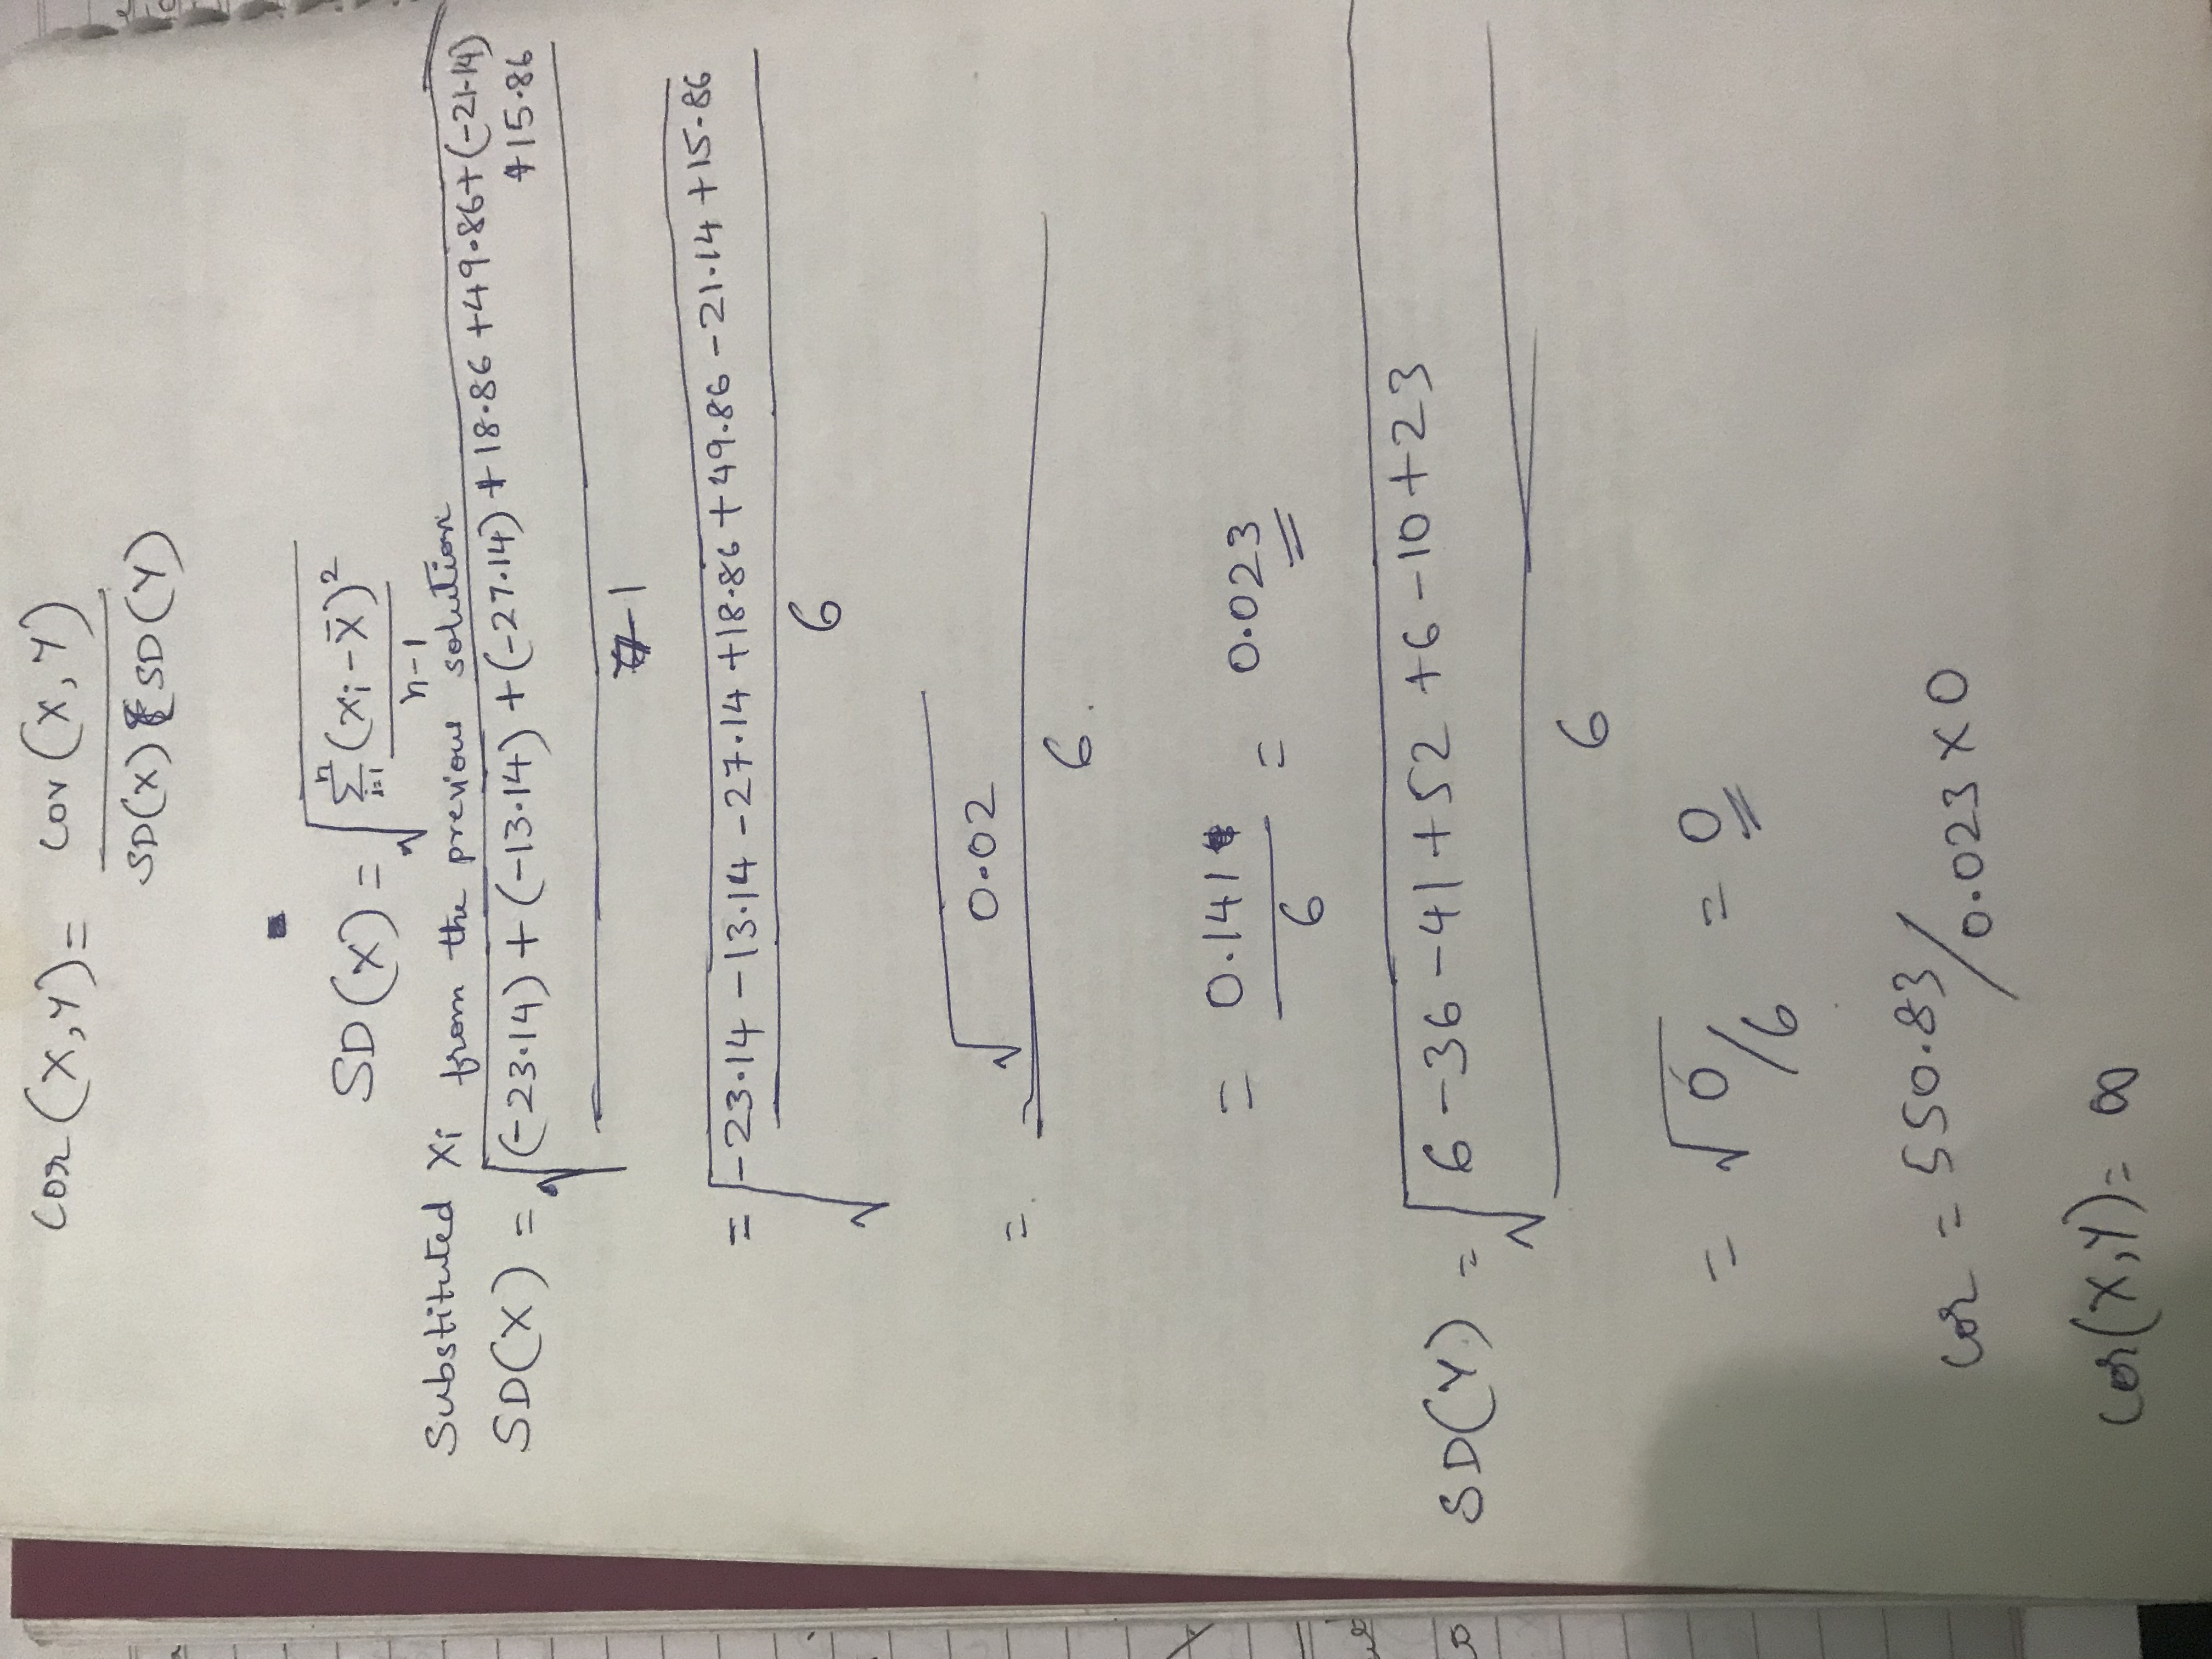 cor (X,Y) = cov (X, Y)
SD(X) SD(Y)
SD(X) = √ Σ (xi - x̄)²
n
i=1
n-1
Substituted Xi from the previous solution
SD(X) = √ (-23.14) + (-13.14) + (-27.14) + 18.86 + 49.86 + (-21.14)
+15.86
7-1
= √ -23.14 - 13.14 - 27.14 + 18.86 + 49.86 - 21.14 + 15.86
6
= √ 0.02
6.
= 0.141 = 0.023
6
SD(Y) = √ 6 - 36 - 41 + 52 + 6 - 10 + 23
6
= √0/6 = 0
cor = 550.83/0.023 X 0
cor(X,Y) = ∞